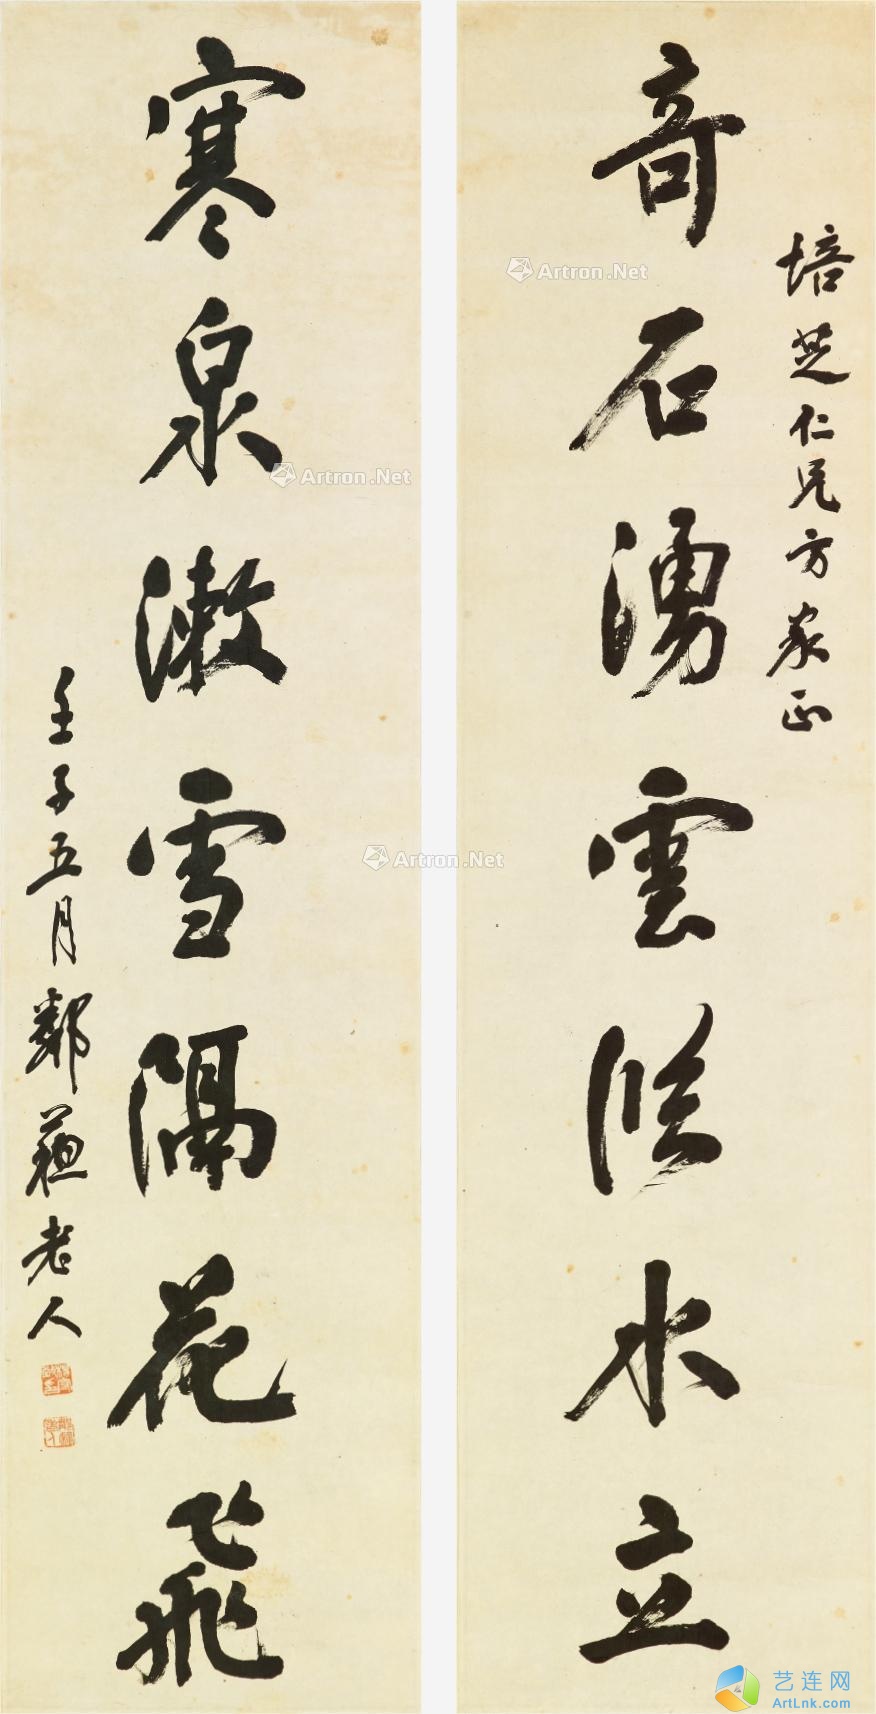 培芝仁兄方家正
奇石湧雲從水立
寒泉漱雪隔花飛
壬子五月鄰蘇老人
Artron.Net
Artron.Net
Artron.Net
艺连网
ArtLnk.com